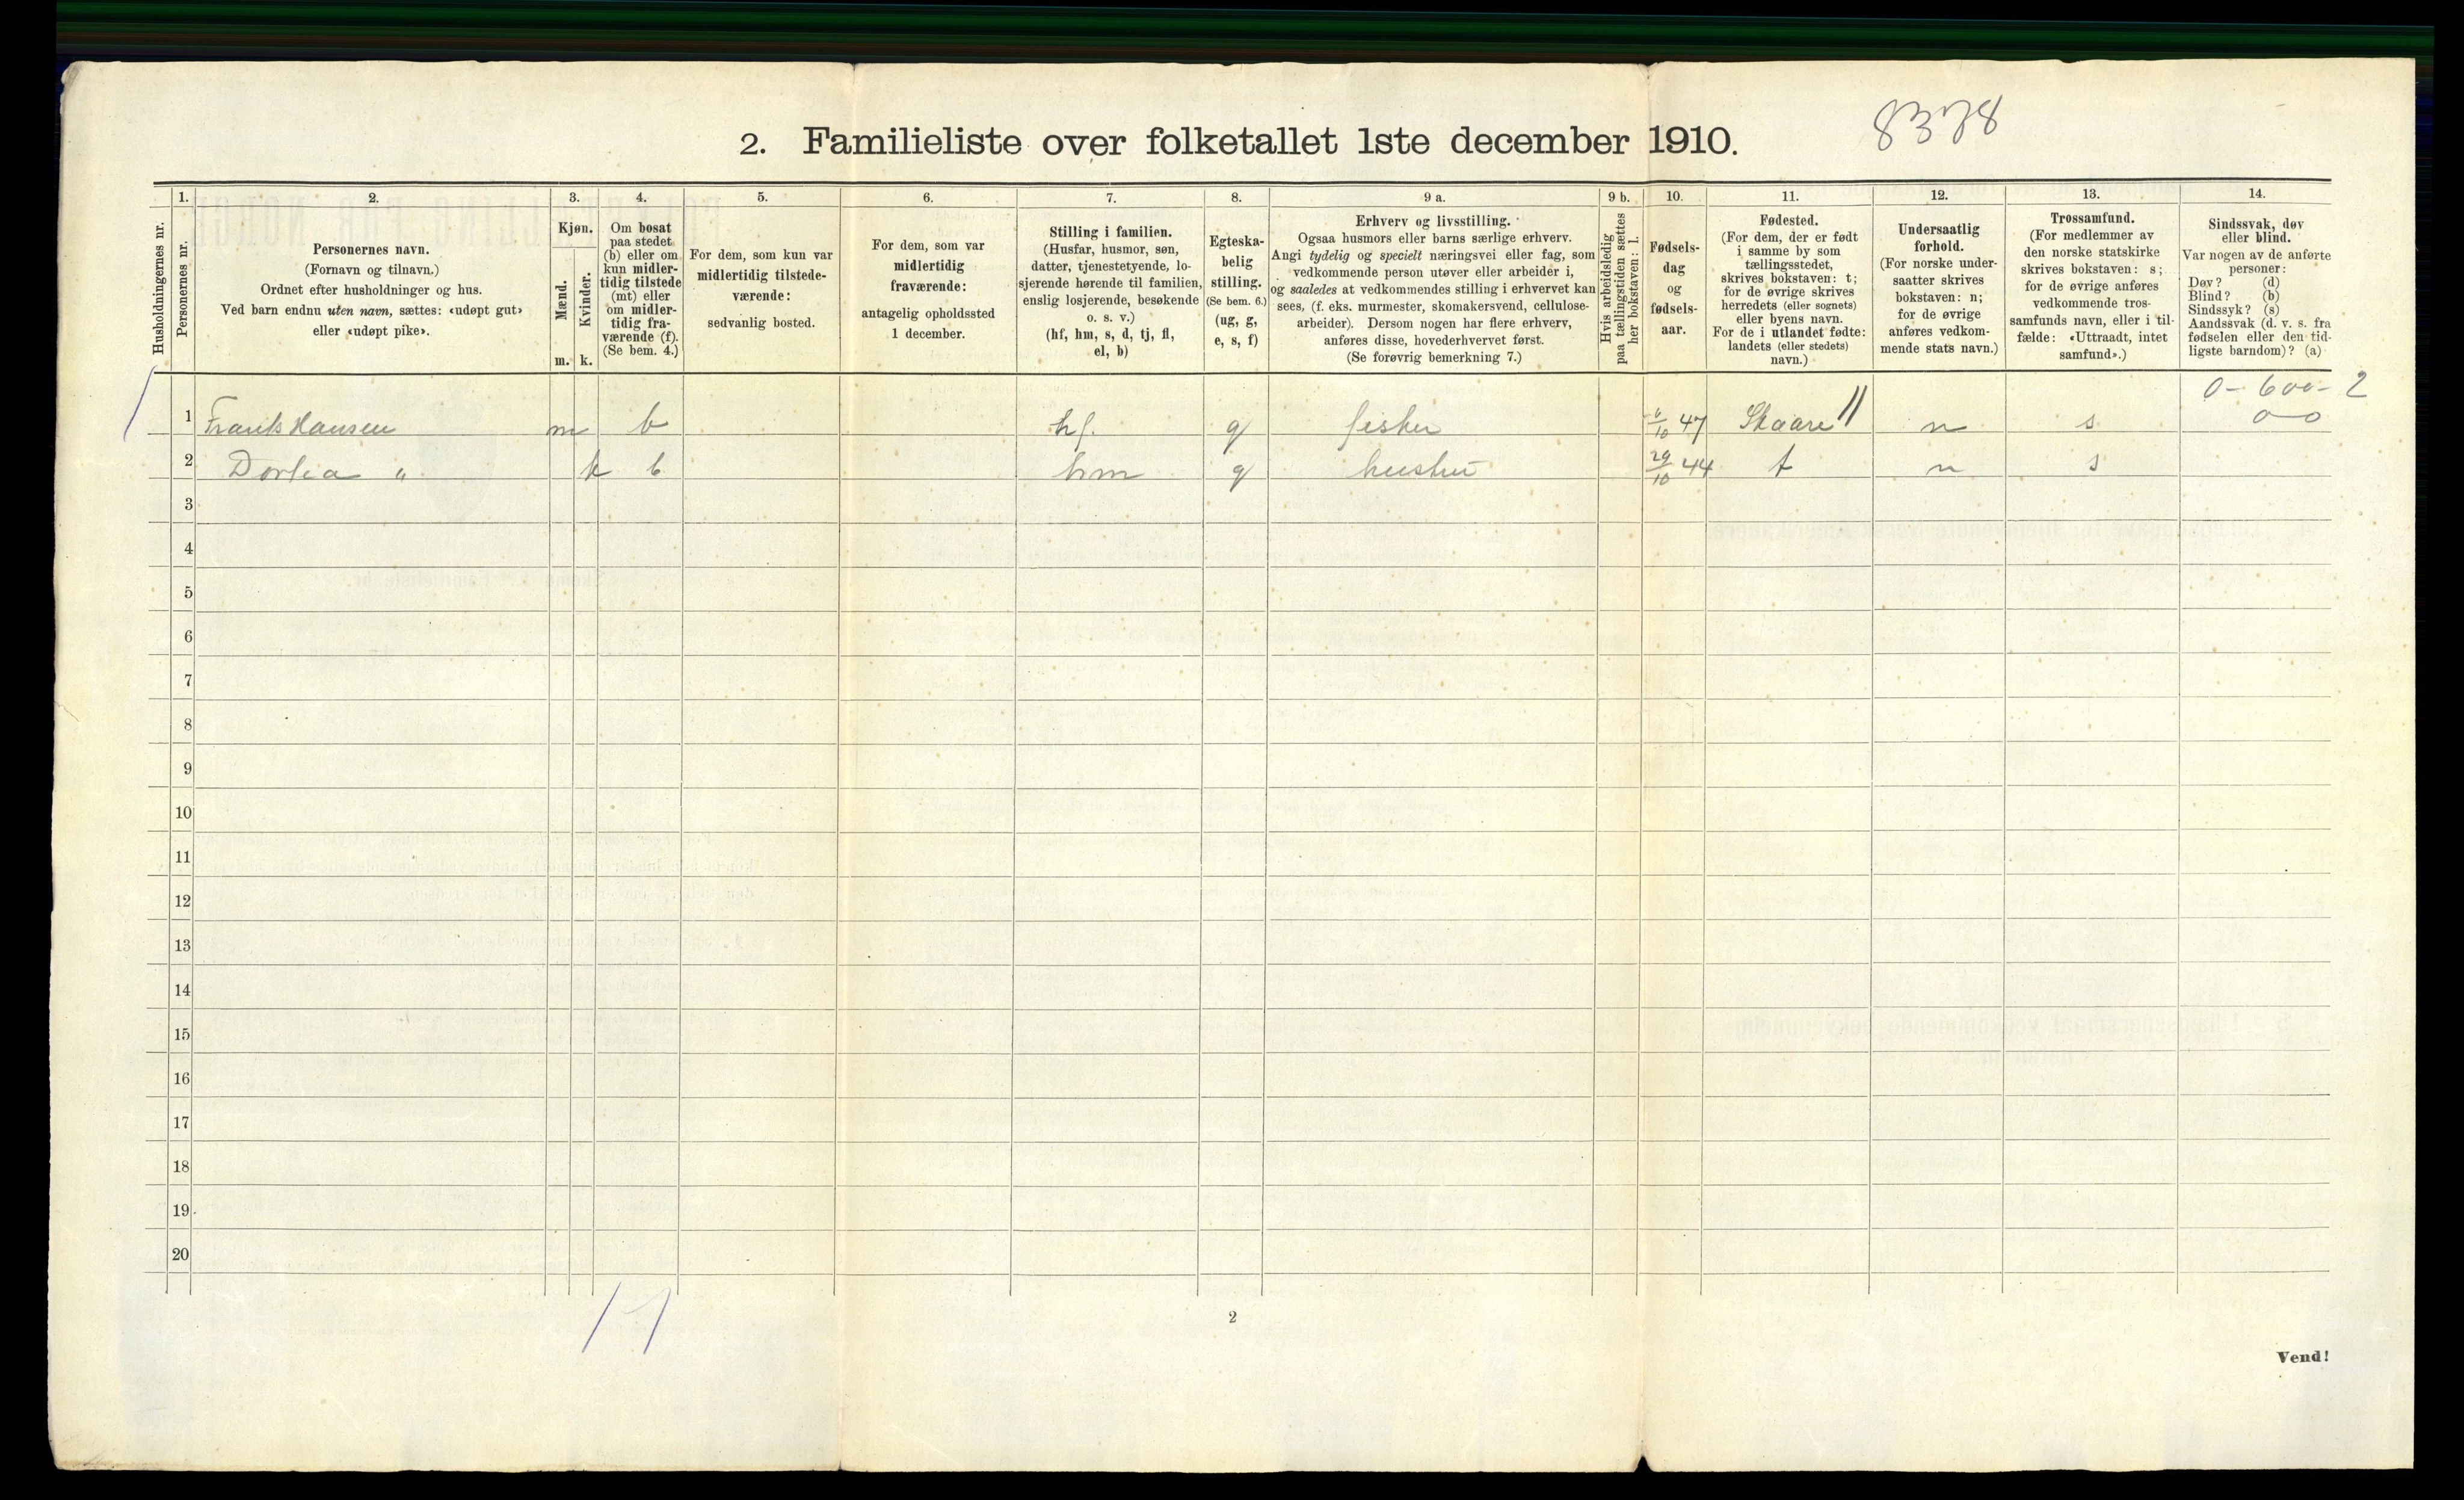 2. Familieliste over folketallet 1ste december 1910.
8378
Husholdningernes nr.
1.
Personernes nr.
2.
Personernes navn.
(Fornavn og tilnavn.)
Ordnet efter husholdninger og hus.
Ved barn endnu uten navn, sættes: «udøpt gut»
eller «udøpt pike».
3.
Kjøn.
Mænd.
m.
Kvinder.
k.
4.
Om bosat
paa stedet
(b) eller om
kun midler-
tidig tilstede
(mt) eller
om midler-
tidig fra-
værende (f).
(Se bem. 4.)
5.
For dem, som kun var
midlertidig tilstede-
værende:
sedvanlig bosted.
6.
For dem, som var
midlertidig
fraværende:
antagelig opholdssted
1 december.
7.
Stilling i familien.
(Husfar, husmor, søn,
datter, tjenestetyende, lo-
sjerende hørende til familien,
enslig losjerende, besøkende
o. s. v.)
(hf, hm, s, d, tj, fl,
el, b)
8.
Egteska-
belig
stilling.
(Se bem. 6.)
(ug, g,
e, s, f)
9 a.
Erhverv og livsstilling.
Ogsaa husmors eller barns særlige erhverv.
Angi tydelig og specielt næringsvei eller fag, som
vedkommende person utøver eller arbeider i,
og saaledes at vedkommendes stilling i erhvervet kan
sees, (f. eks. murmester, skomakersvend, cellulose-
arbeider). Dersom nogen har flere erhverv,
anføres disse, hovederhvervet først.
(Se forøvrig bemerkning 7.)
9 b.
Hvis arbeidsledig
paa tællingstiden sættes
her bokstaven: l.
10.
Fødsels-
dag
og
fødsels-
aar.
11.
Fødested.
(For dem, der er født
i samme by som
tællingsstedet,
skrives bokstaven: t;
for de øvrige skrives
herredets (eller sognets)
eller byens navn.
For de i utlandet fødte:
landets (eller stedets)
navn.)
12.
Undersaatlig
forhold.
(For norske under-
saatter skrives
bokstaven: n;
for de øvrige
anføres vedkom-
mende stats navn.)
13.
Trossamfund.
(For medlemmer av
den norske statskirke
skrives bokstaven: s;
for de øvrige anføres
vedkommende tros-
samfunds navn, eller i til-
fælde: «Uttraadt, intet
samfund».)
14.
Sindssvak, døv
eller blind.
Var nogen av de anførte
personer:
Døv? (d)
Blind? (b)
Sindssyk? (s)
Aandssvak (d. v. s. fra
fødselen eller den tid-
ligste barndom)? (a)
0-600-2
0-0
1 Frants Hansen m b hf. g fisker 6/10 47 Skaare n s
2 Dortea " k b hm g hustru 29/10 44 t n s
3
4
5
6
7
8
9
10
11
12
13
14
15
16
17
18
19
20
1-1
2
Vend!